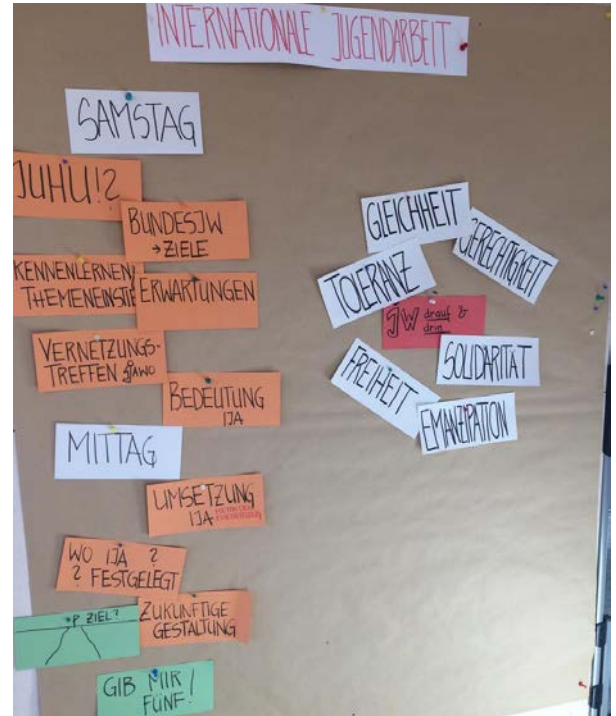 INTERNATIONALE JUGENDARBEIT
SAMSTAG
JUHU!?
BUNDESJW
→ ZIELE
KENNENLERNEN/
THEMENEINSTIE
ERWARTUNGEN
VERNETZUNGS-
TREFFEN SJAWO
BEDEUTUNG
IJA
MITTAG
UMSETZUNG
IJA
WO IJA ?
? FESTGELEGT
ZUKÜNFTIGE
GESTALTUNG
ZIEL?
GIB MIR
FÜNF!
GLEICHHEIT
GERECHTIGKEIT
TOLERANZ
JW drauf &
drin
SOLIDARITÄT
FREIHEIT
EMANZIPATION